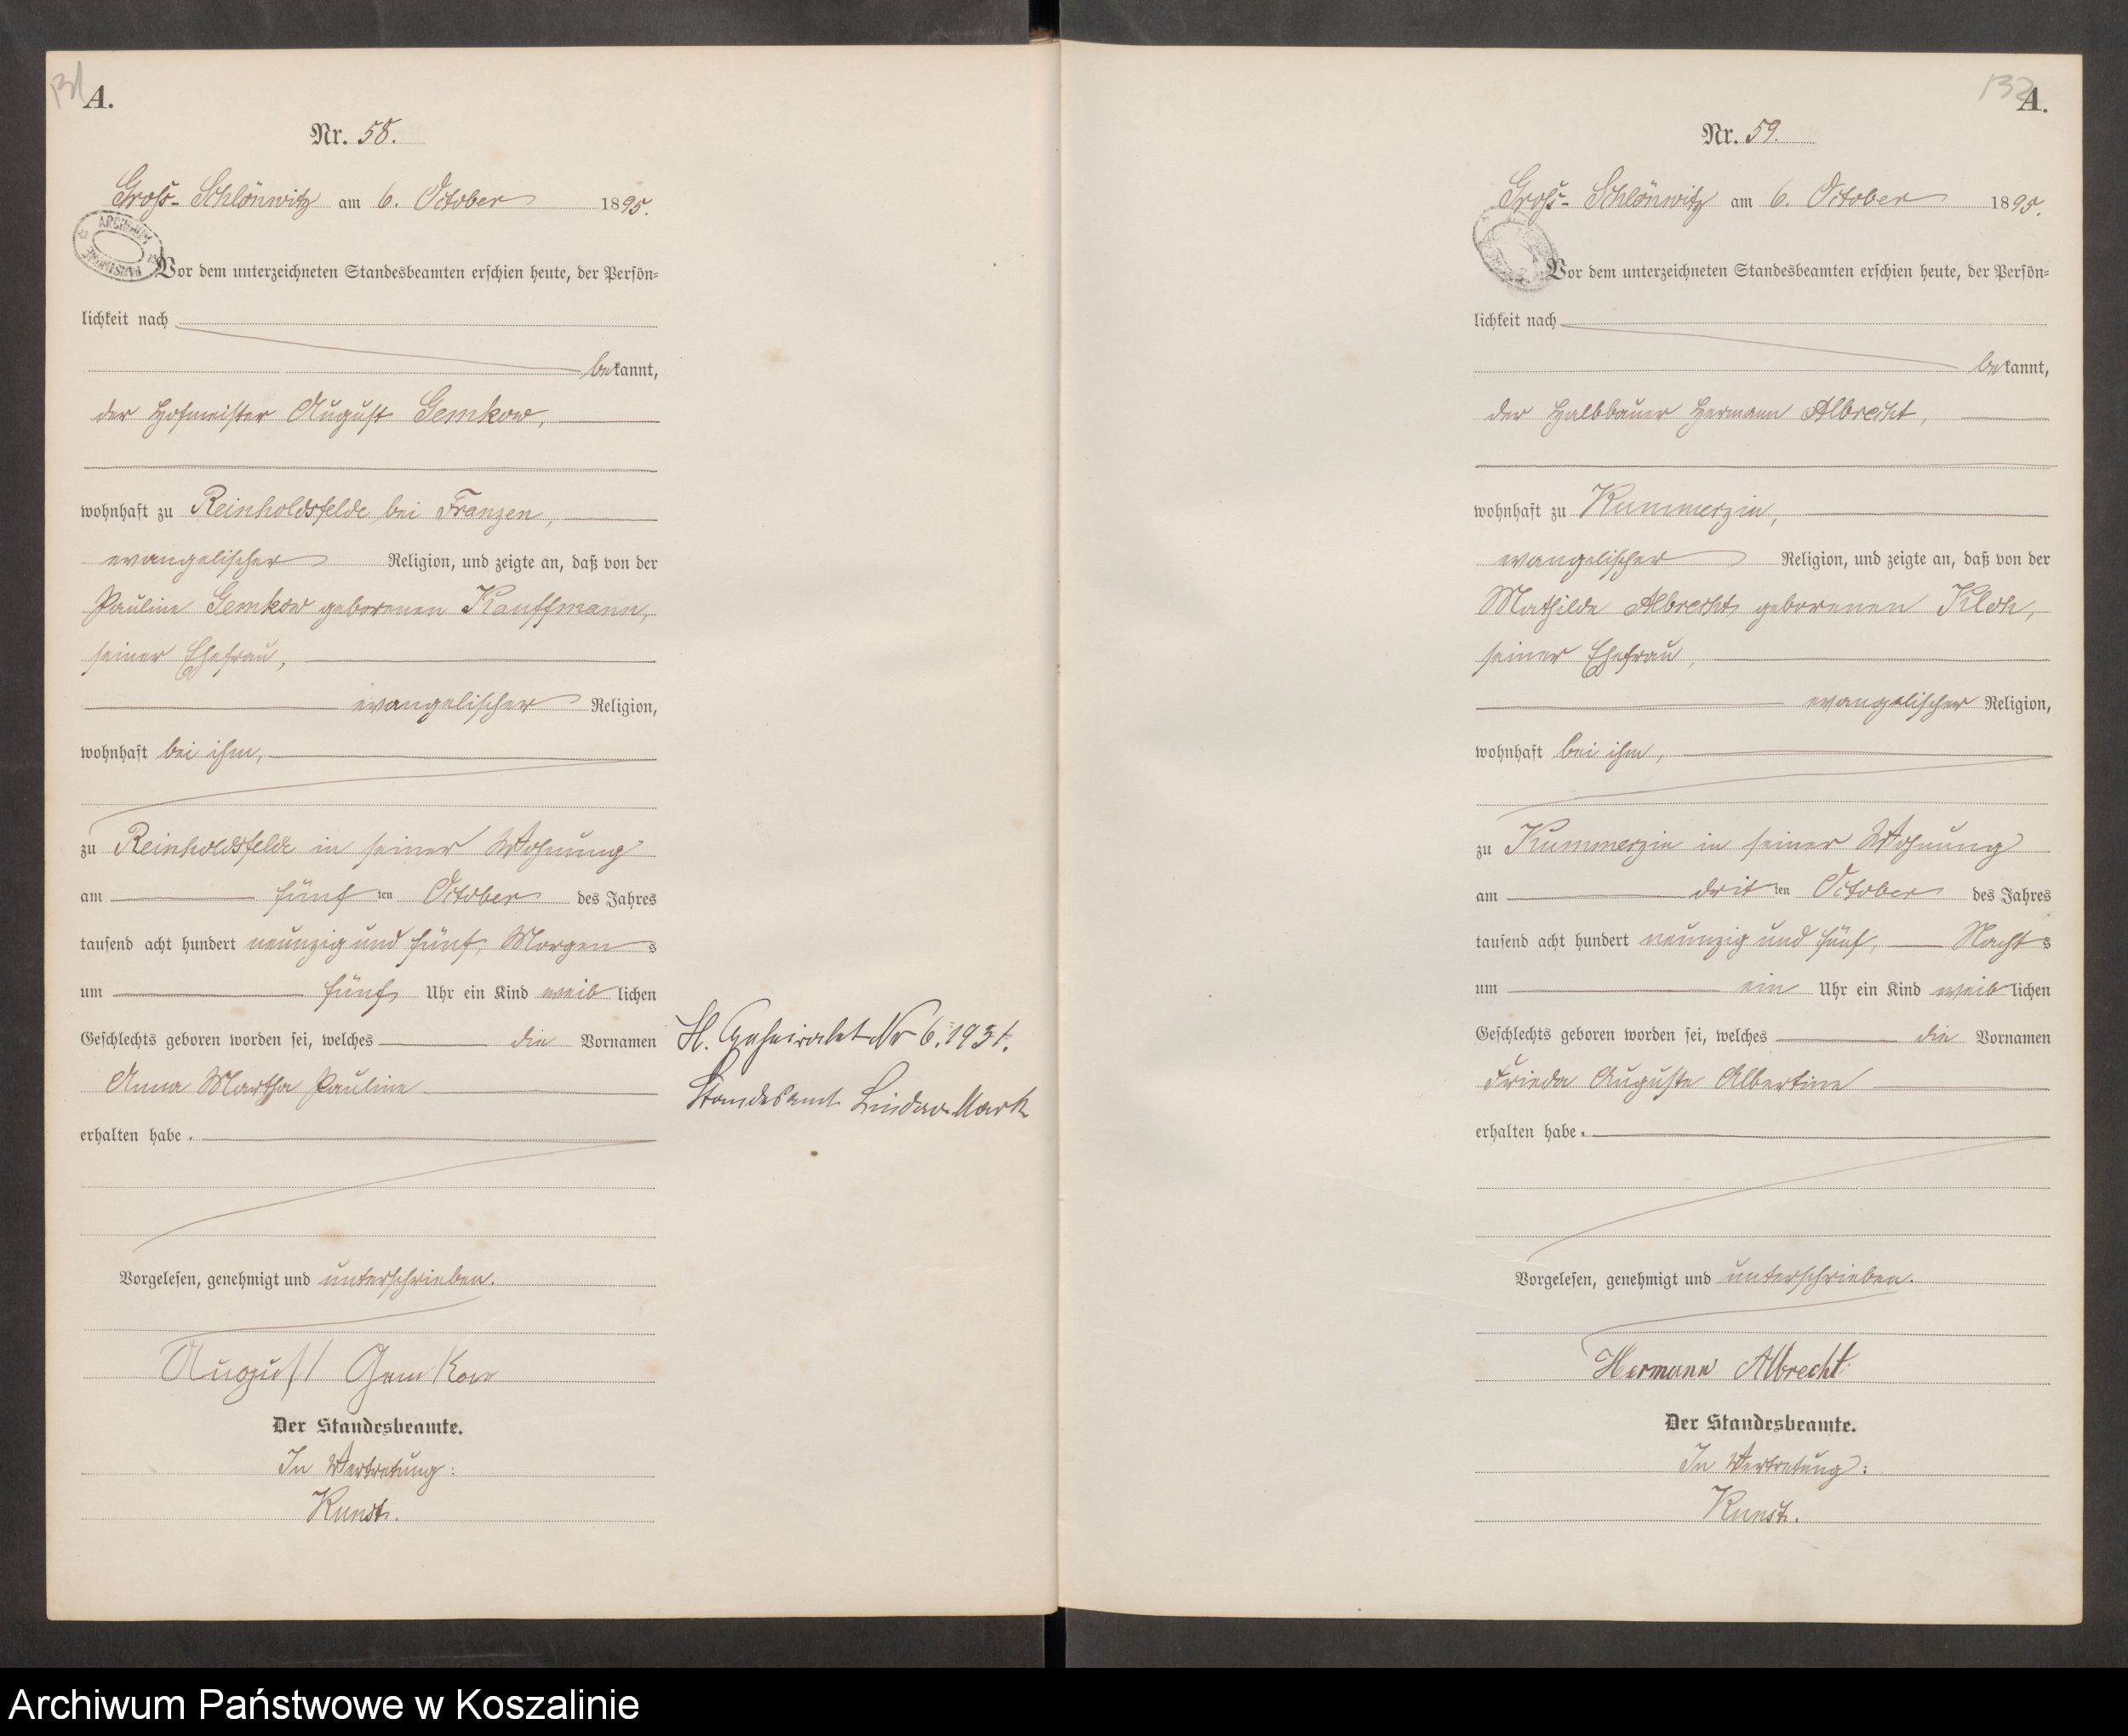 131
A.
Nr. 58.
Groß-Schlönwitz am 6. October 1895.
ARCHIWUM PAŃSTWOWE
Vor dem unterzeichneten Standesbeamten erschien heute, der Persön-
lichkeit nach
bekannt,
der Hofmeister August Gemkow,
wohnhaft zu Reinholdsfelde bei Franzen,
evangelischer Religion, und zeigte an, daß von der
Pauline Gemkow geborenen Kauffmann,
seiner Ehefrau,
evangelischer Religion,
wohnhaft bei ihm,
zu Reinholdsfelde in seiner Wohnung
am fünf ten October des Jahres
tausend acht hundert neunzig und fünf, Morgens
um fünf Uhr ein Kind weiblichen
Geschlechts geboren worden sei, welches die Vornamen
Anna Martha Pauline
erhalten habe.
Vorgelesen, genehmigt und unterschrieben.
August Gemkow
Der Standesbeamte.
In Vertretung:
Kunst.
H. Geheiratet Nr 6.1931.
Standesamt Lindow-Mark
132
A.
Nr. 59.
Groß-Schlönwitz am 6. October 1895.
Vor dem unterzeichneten Standesbeamten erschien heute, der Persön-
lichkeit nach
bekannt,
der Halbbauer Hermann Albrecht,
wohnhaft zu Kummerzin,
evangelischer Religion, und zeigte an, daß von der
Mathilde Albrecht geborenen Kloh,
seiner Ehefrau,
evangelischer Religion,
wohnhaft bei ihm,
zu Kummerzin in seiner Wohnung
am drit ten October des Jahres
tausend acht hundert neunzig und fünf, Nachts
um ein Uhr ein Kind weiblichen
Geschlechts geboren worden sei, welches die Vornamen
Frieda Auguste Albertine
erhalten habe.
Vorgelesen, genehmigt und unterschrieben.
Hermann Albrecht
Der Standesbeamte.
In Vertretung:
Kunst.
Archiwum Państwowe w Koszalinie